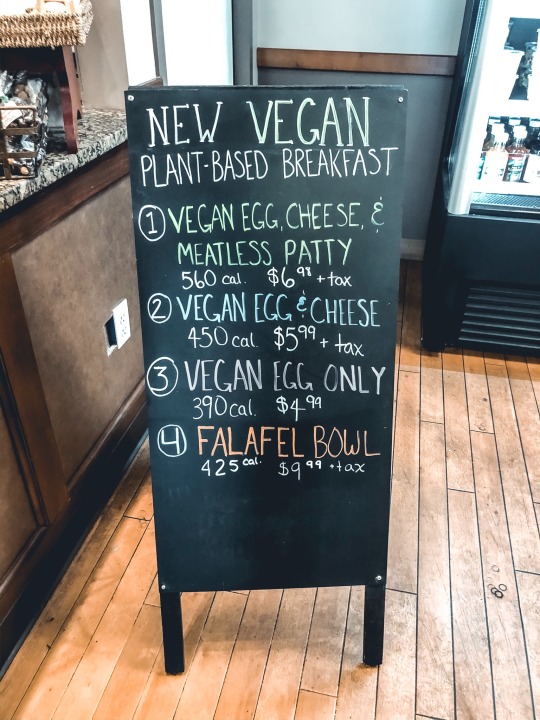 NEW VEGAN
PLANT-BASED BREAKFAST
1 VEGAN EGG, CHEESE, &
MEATLESS PATTY
560 cal. $6.98 + tax
2 VEGAN EGG & CHEESE
450 cal. $5.99 + tax
3 VEGAN EGG ONLY
390 cal. $4.99
4 FALAFEL BOWL
425 cal. $9.99 + tax